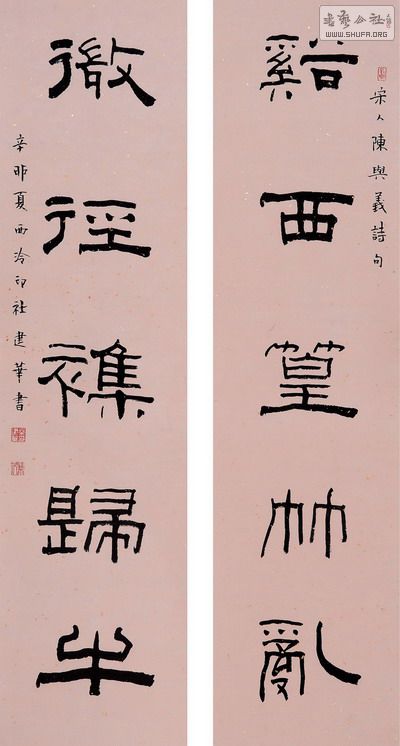 宋人陳與義詩句
谿西篁竹亂
微徑襍歸牛
辛卯夏西泠印社建華書
書藝公社
WWW.SHUFA.ORG